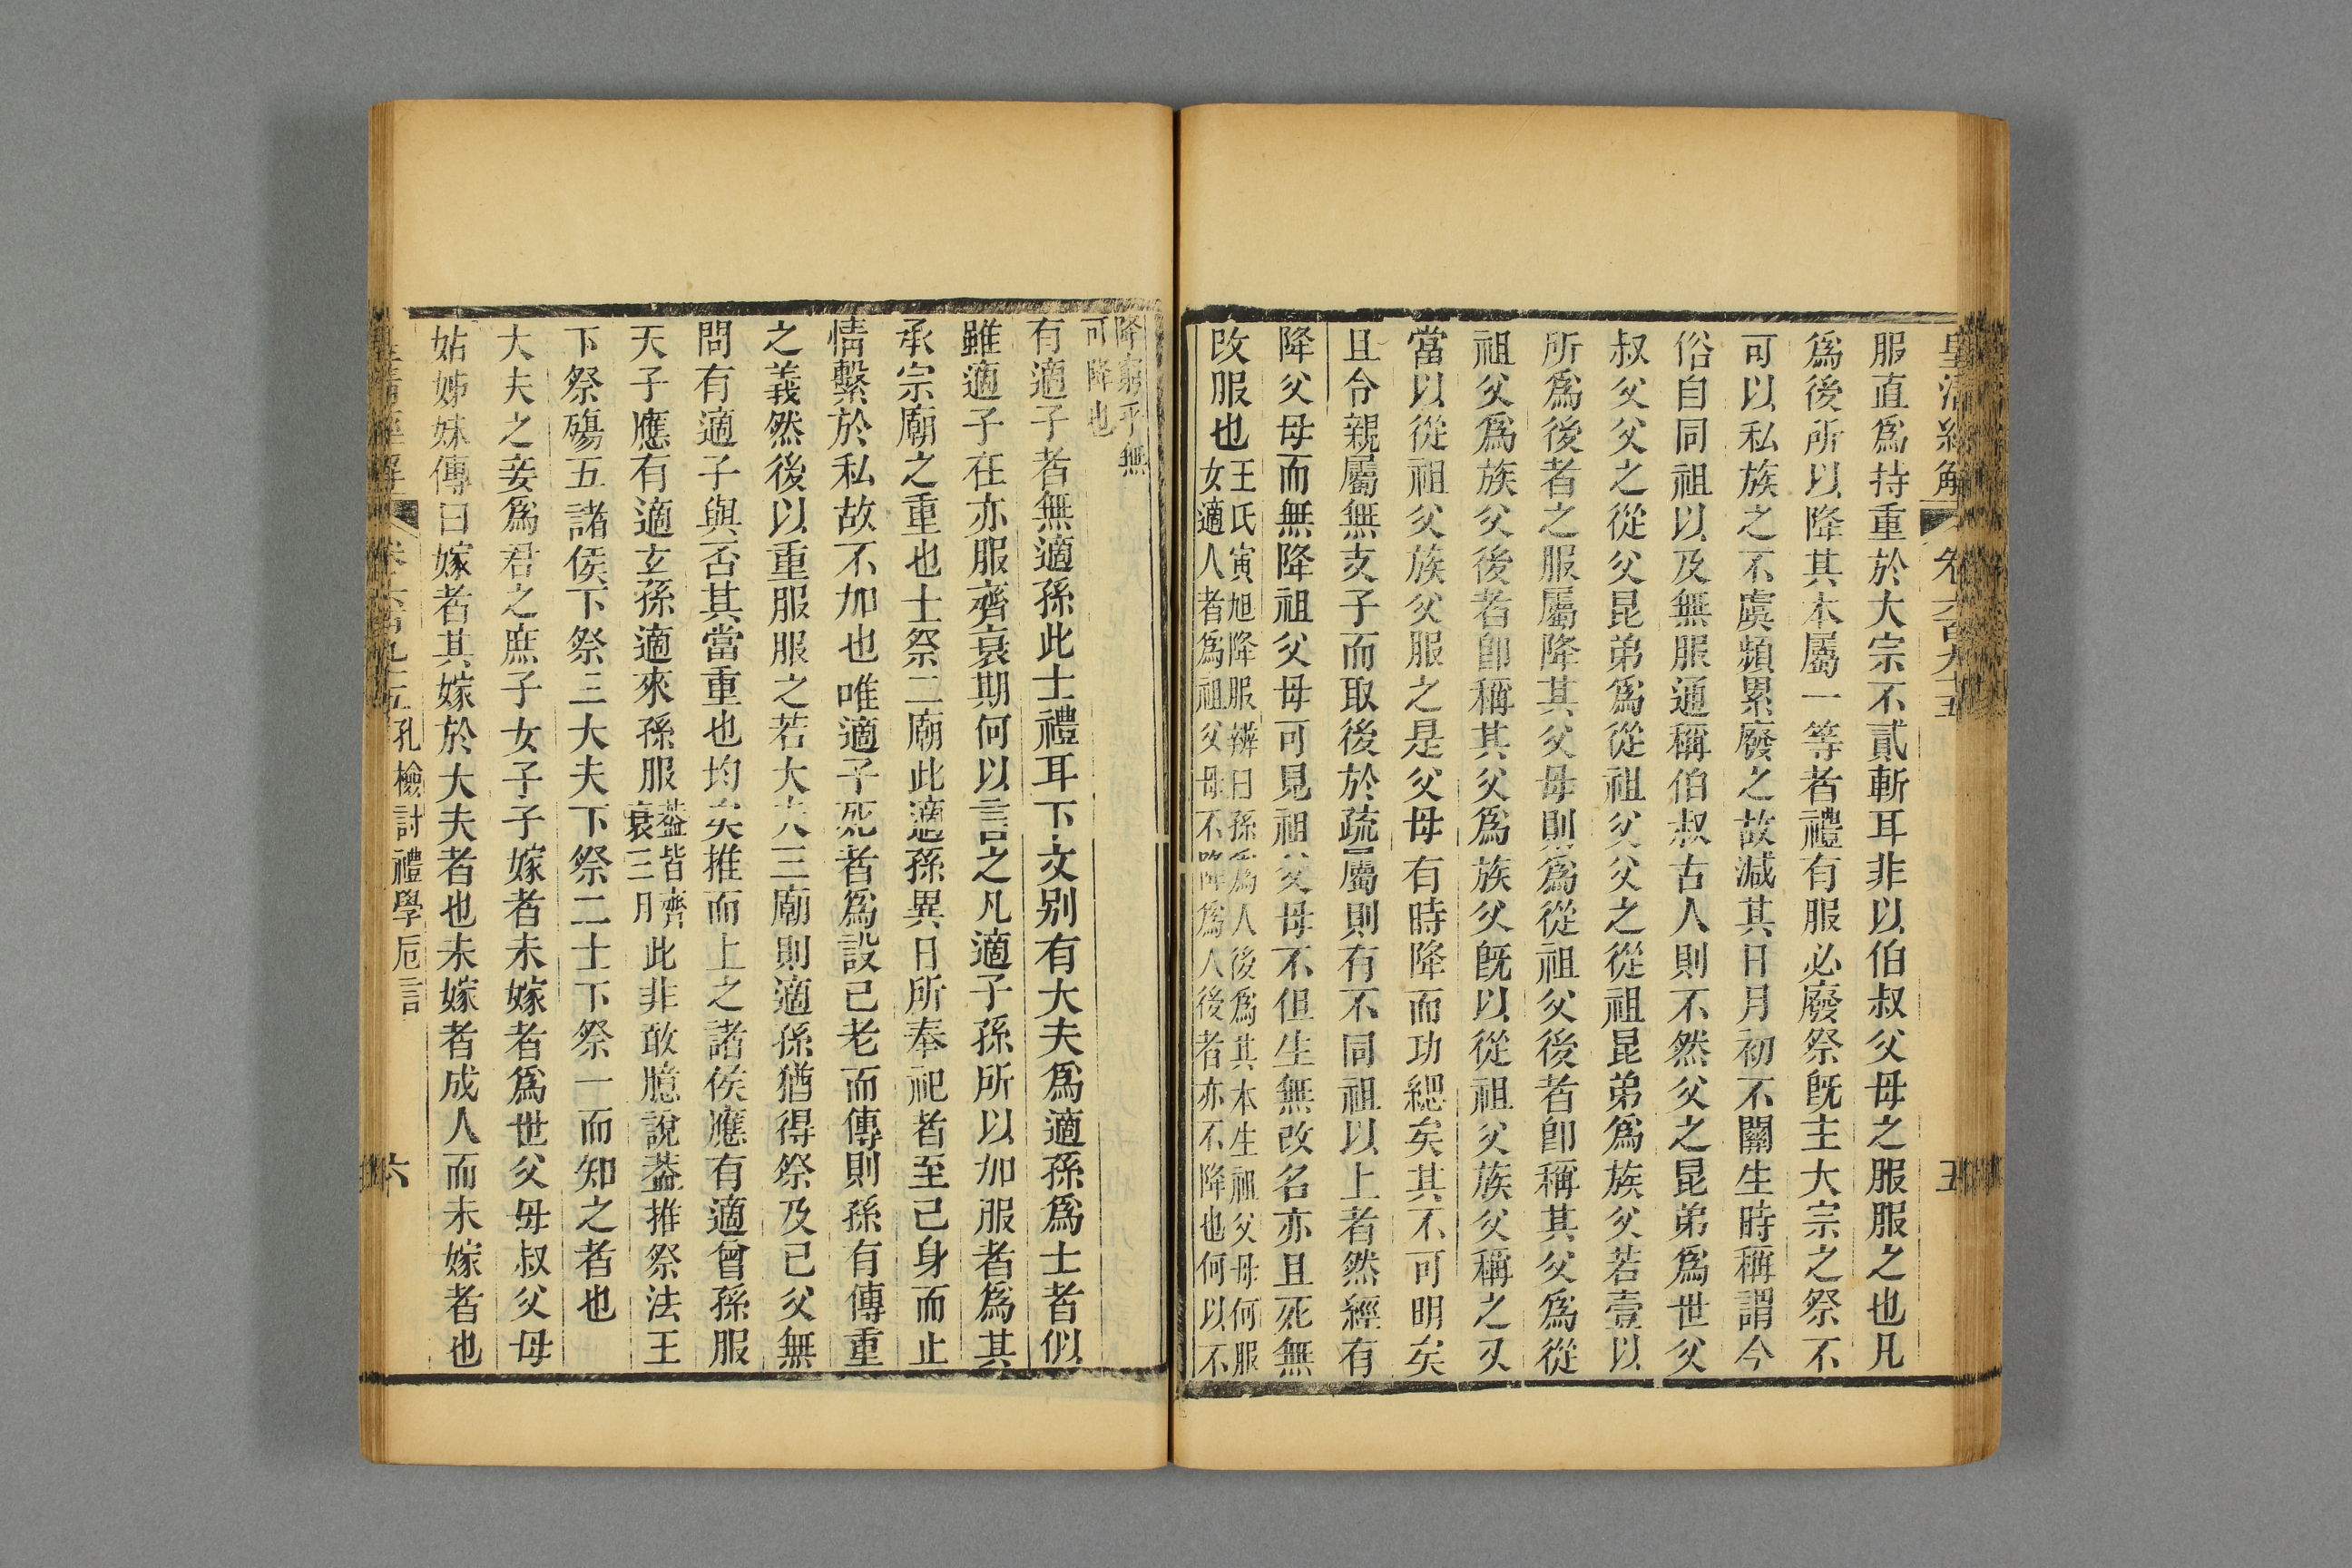 皇清經解 卷六百九十五 五
服直爲持重於大宗不貳斬耳非以伯叔父母之服服之也凡
爲後所以降其本屬一等者禮有服必廢祭旣主大宗之祭不
可以私族之不虞頻累廢之故減其日月初不關生時稱謂今
俗自同祖以及無服通稱伯叔古人則不然父之昆弟爲世父
叔父父之從父昆弟爲從祖父父之從祖昆弟爲族父若壹以
所爲後者之服屬降其父母則爲從祖父後者卽稱其父爲從
祖父爲族父後者卽稱其父爲族父旣以從祖父族父稱之又
當以從祖父族父服之是父母有時降而功緦矣其不可明矣
且令親屬無支子而取後於疏屬則有不同祖以上者然經有
降父母而無降祖父母可見祖父母不但生無改名亦且死無
改服也
王氏寅旭降服辨曰孫爲人後爲其本生祖父母何服
女適人者爲祖父母不降爲人後者亦不降也何以不
降窮乎無
可降也
有適子者無適孫此士禮耳下文别有大夫爲適孫爲士者似
雖適子在亦服齊衰期何以言之凡適子孫所以加服者爲其
承宗廟之重也士祭二廟此適孫異日所奉祀者至己身而止
情繫於私故不加也唯適子死者爲設己老而傳則孫有傳重
之義然後以重服服之若大夫三廟則適孫猶得祭及己父無
問有適子與否其當重也均矣推而上之諸侯應有適曾孫服
天子應有適玄孫適來孫服
葢皆齊
衰三月
此非敢臆說葢推祭法王
下祭殤五諸侯下祭三大夫下祭二士下祭一而知之者也
大夫之妾爲君之庶子女子子嫁者未嫁者爲世父母叔父母
姑姊妹傳曰嫁者其嫁於大夫者也未嫁者成人而未嫁者也
皇清經解 卷六百九十五 孔檢討禮學卮言 六